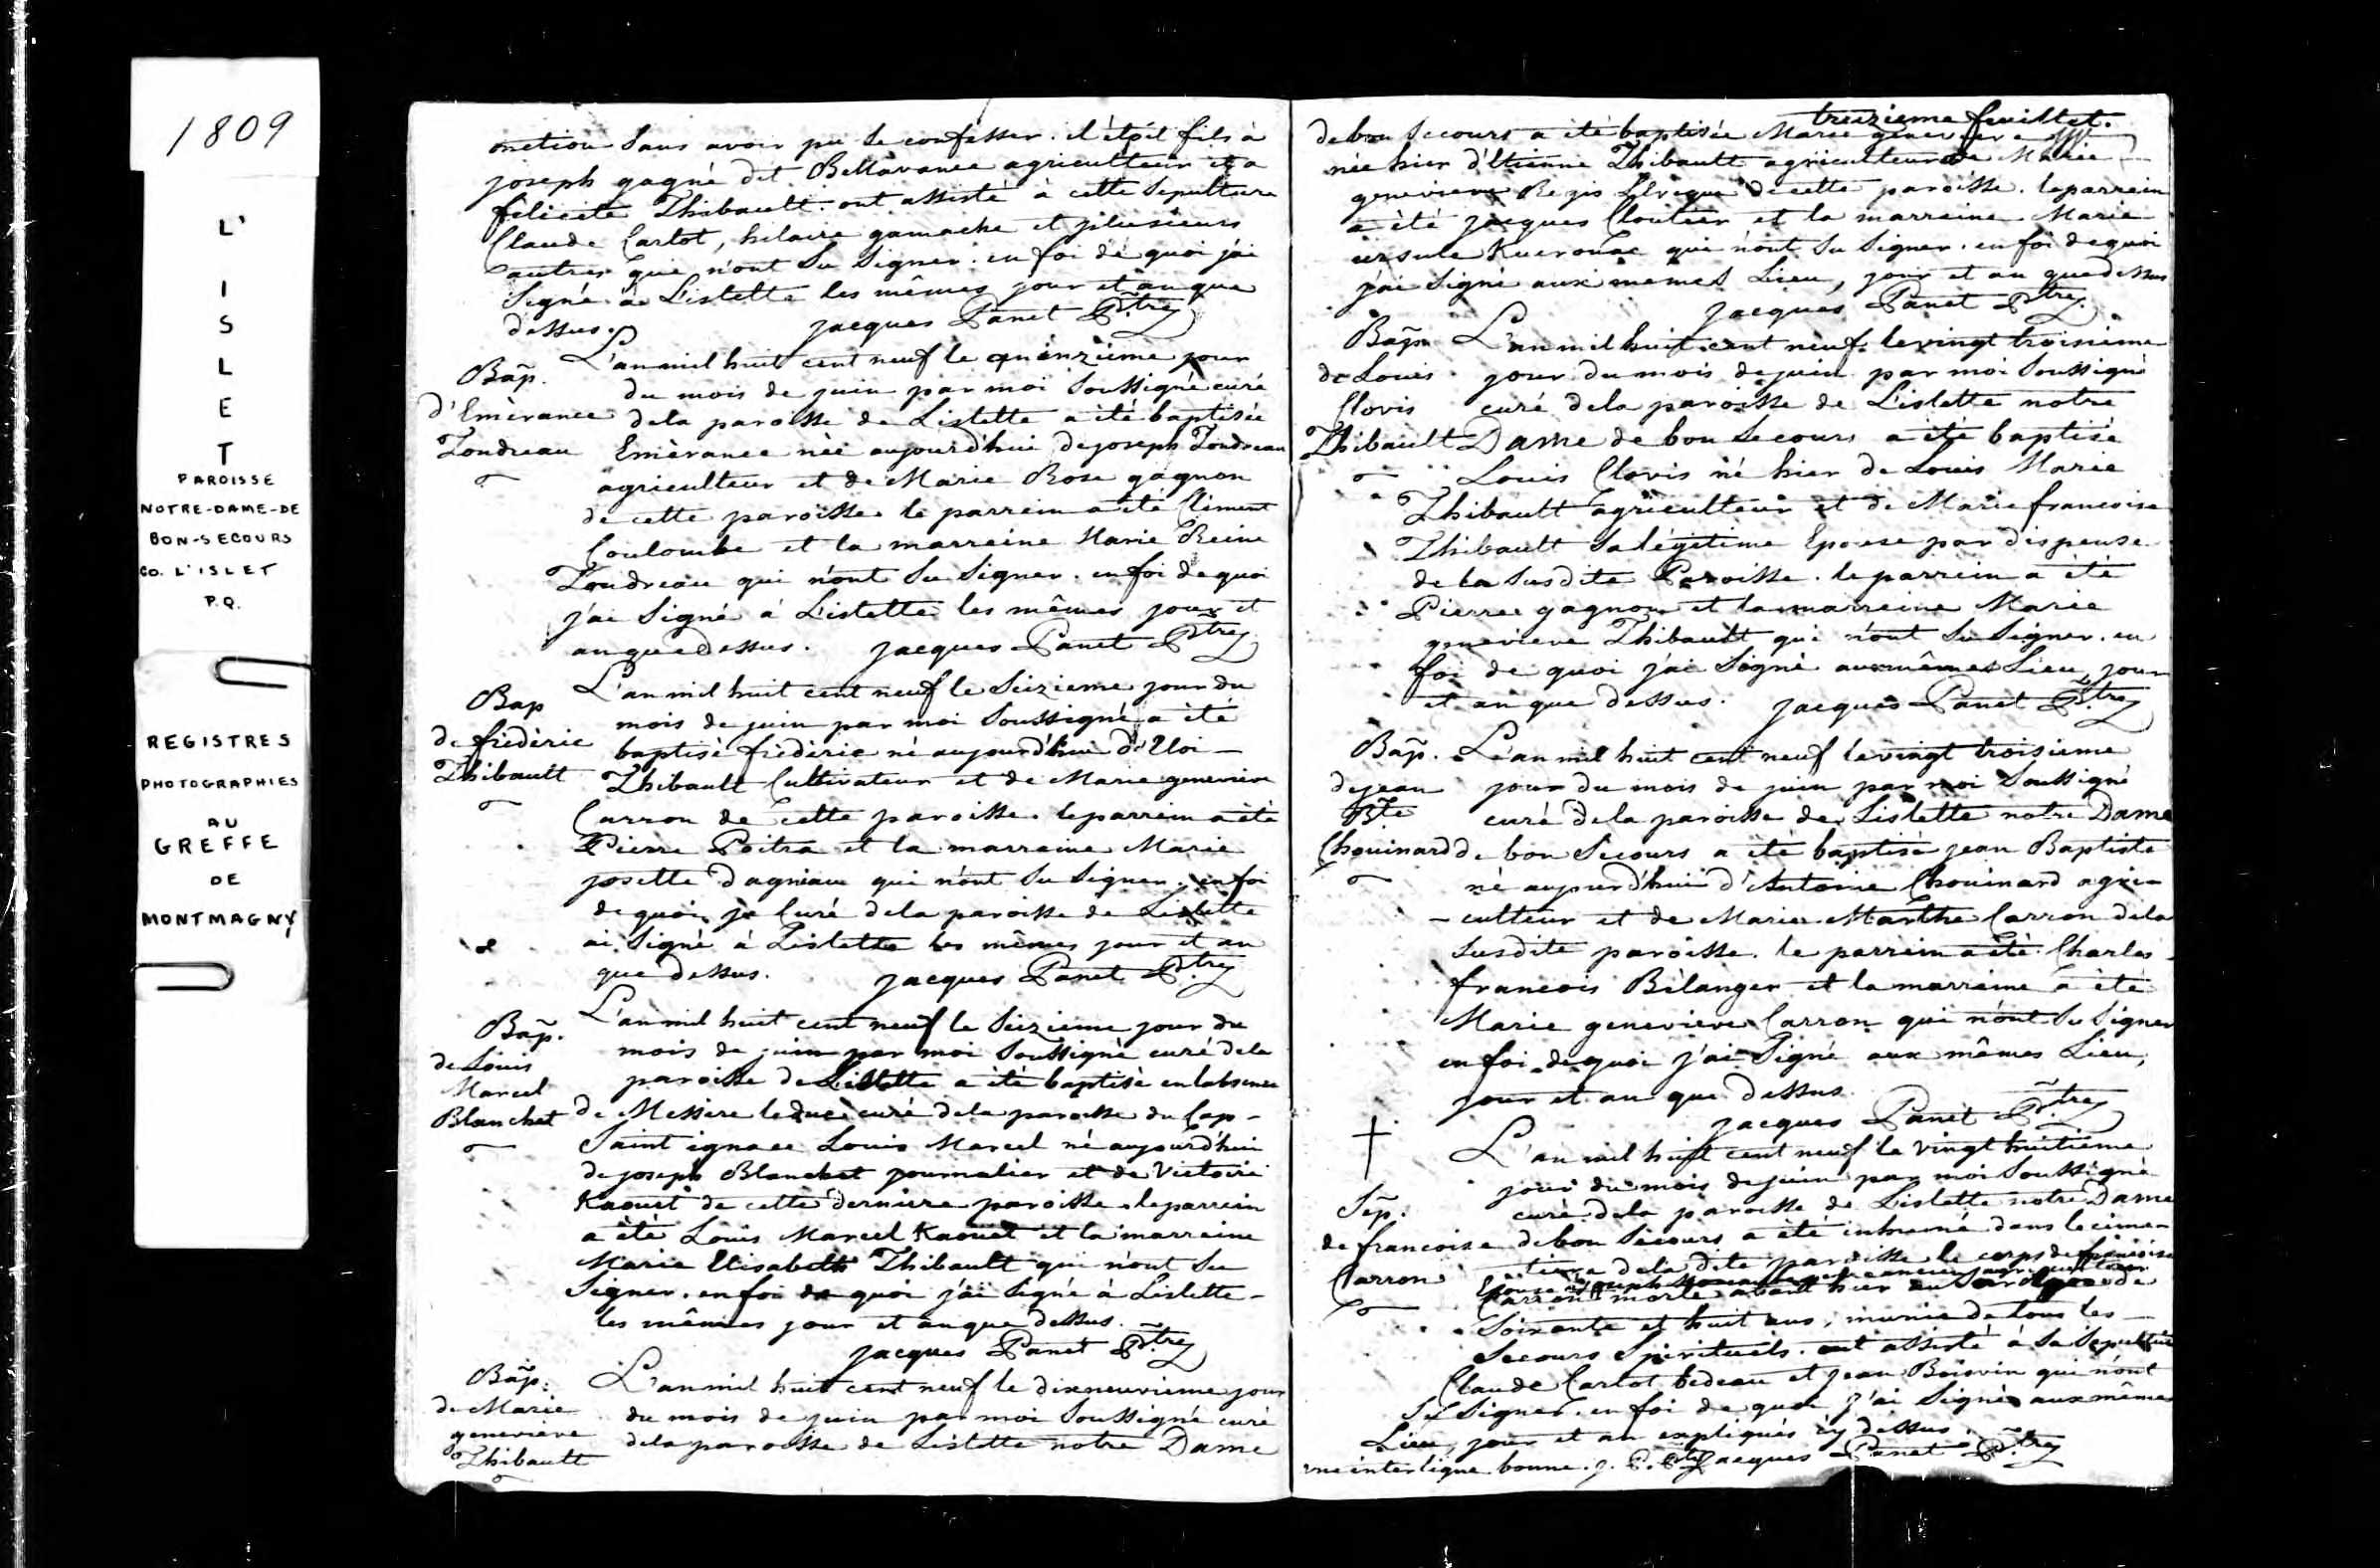 1809
L'
I
S
L
E
T
PAROISSE
NOTRE-DAME-DE
BON-SECOURS
CO. L'ISLET
P.Q.
REGISTRES
PHOTOGRAPHIES
AU
GREFFE
DE
MONTMAGNY
onction sans avoir pu se confesser. il étoit fils à
joseph gagné dit Bellavance agriculteur et a
félicité Thibault. ont assisté à cette sepulture
Claude Carlot, hilaire gamache et plusieurs
autres qui n'ont su signer. en foi de quoi j'ai
signé à Lislette les mêmes jour et an que
dessus. jacques Panet Ptre
Bap.
d'Emérance
Tondreau
L'an mil huit cent neuf le quinzième jour
du mois de juin par moi soussigné curé
de la paroisse de Lislette a été baptisée
Emérance née aujourd'hui de joseph Tondreau
agriculteur et de Marie Rose gagnon
de cette paroisse. le parrein a été Clément
Coulombe et la marreine Marie Reine
Tondreau qui n'ont su signer. en foi de quoi
j'ai signé à Lislette les mêmes jour et
an que dessus. jacques Panet Ptre
Bap
de frédéric
Thibault
L'an mil huit cent neuf le seizieme jour du
mois de juin par moi soussigné a été
baptisé frédéric né aujourd'hui d'Eloi
Thibault Cultivateur et de Marie genevieve
Carron de cette paroisse. le parrein a été
Pierre Poitra et la marraine Marie
josette Dagniau qui n'ont su signer. en foi
de quoi je Curé de la paroisse de Lislette
ai signé à Lislette les mêmes jour et an
que dessus. jacques Panet Ptre
Bap.
de Louis
Marcel
Blanchet
L'an mil huit cent neuf le seizieme jour du
mois de juin par moi soussigné curé de la
paroisse de Lislette a été baptisé en l'absence
de Messire leduc curé de la paroisse du Cap-
Saint ignace Louis Marcel né aujourd'hui
de joseph Blanchet journalier et de Victoire
Kaouet de cette derniere paroisse. le parrein
a été Louis Marcel Kaouet et la marreine
Marie Elisabeth Thibault qui n'ont su
signer. en foi de quoi j'ai signé à Lislette
les mêmes jour et an que dessus.
jacques Panet Ptre
Bap.
de Marie
genevieve
Thibault
L'an mil huit cent neuf le dixneuvieme jour
du mois de juin par moi soussigné curé
de la paroisse de Lislette notre Dame
treizieme feuillet.
de bon secours a été baptisée Marie genevieve
née hier d'Etienne Thibault agriculteur de Marie
genevieve Regis Lévèque de cette paroisse. le parrein
a été jacques Cloutier et la marreine Marie
ursule Kuerouac qui n'ont su signer. en foi de quoi
j'ai signé aux memes Lieu, jour et an que dessus
jacques Panet Ptre
Bap.
de Louis
Clovis
Thibault
L'an mil huit cent neuf le vingt troisieme
jour du mois de juin par moi soussigné
curé de la paroisse de Lislette notre
Dame de bon secours a été baptisé
Louis Clovis né hier de Louis Marie
Thibault agriculteur et de Marie francoise
Thibault sa légitime Epouse par dispense
de la susdite Paroisse. le parrein a été
Pierre gagnon et la marreine Marie
genevieve Thibault qui n'ont su signer. en
foi de quoi j'ai signé aux mêmes Lieu, jour
et an que dessus. jacques Panet Ptre
Bap.
de jean
Bte
Chouinard
L'an mil huit cent neuf le vingt troisieme
jour du mois de juin par moi soussigné
curé de la paroisse de Lislette notre Dame
de bon Secours a été baptisé jean Baptiste
né aujourd'hui d'Antoine Chouinard agri-
-culteur et de Marie Marthe Carron de la
susdite paroisse. le parrein a été Charles
francois Bélanger et la marreine a été
Marie genevieve Carron qui n'ont su signer
en foi de quoi j'ai signé aux mêmes Lieu,
jour et an que dessus.
jacques Panet Ptre
†
Sep.
de francoise
Carron
L'an mil huit cent neuf le vingt huitieme
jour du mois de juin par moi soussigné
curé de la paroisse de Lislette notre Dame
de bon secours a été inhumé dans le cime-
-tiere de la dite paroisse le corps de francoise
Epouse de joseph ancien agriculteur
Carron morte avant hier de
soixante et huit ans, munie de tous les
secours spirituels. ont assisté à sa sepulture
Claude Carlot bedeau et jean Boisvin qui n'ont
su signer. en foi de quoi j'ai signé aux même
Lieu, jour et an expliqués cy dessus.
une interligne bonne. j. P. Ptre jacques Panet Ptre